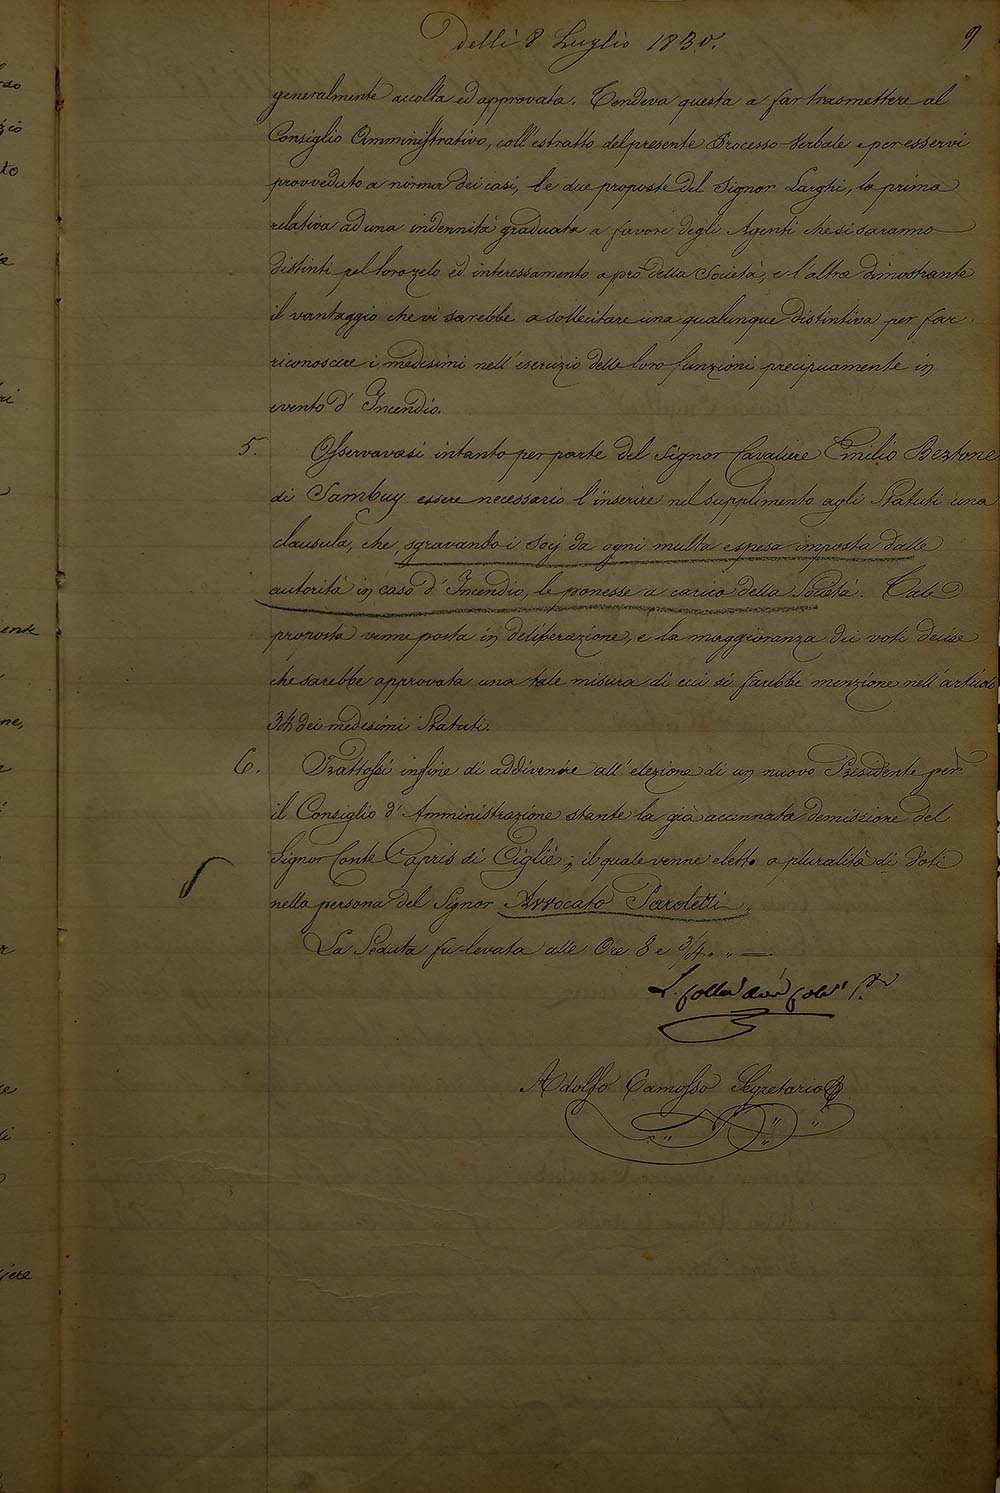 Delli 8 Luglio 1830.
9
generalmente accolta ed approvata. Tendeva questa a far trasmettere al
Consiglio Amministrativo, coll'estratto del presente Processo-Verbale e per esservi
provveduto a norma dei casi, le due proposte del Signor Larghi, la prima
relativa ad una indennità graduata a favore degli Agenti che si saranno
distinti pel loro zelo ed interessamento a pro della Società, e l'altra dimostrante
il vantaggio che vi sarebbe a sollecitare una qualunque distintiva per far
riconoscere i medesimi nell'esercizio delle loro funzioni precipuamente in
evento d'Incendio.
5. Osservavasi intanto per parte del Signor Cavaliere Emilio Bertone
di Sambuy essere necessario l'inserire nel supplimento agli Statuti una
clausula, che, sgravando i Socj da ogni multa e spesa imposta dalle
autorità in caso d'Incendio, le ponesse a carico della Società. Tale
proposta venne posta in deliberazione, e la maggioranza dei voti decise
che sarebbe approvata una tale misura di cui si farebbe menzione nell'articolo
34 dei medesimi Statuti.
6. Trattossi infine di addivenire all'elezione di un nuovo Presidente per
il Consiglio d'Amministrazione stante la già accennata demissione del
Signor Conte Capris di Cigliè; il quale venne eletto a pluralità di Voti
nella persona del Signor Avvocato Paroletti „
La Seduta fu levata alle Ore 8 e 3/4. „
L. Colla
Adolfo Camosso Segretario
ente
ne,
to